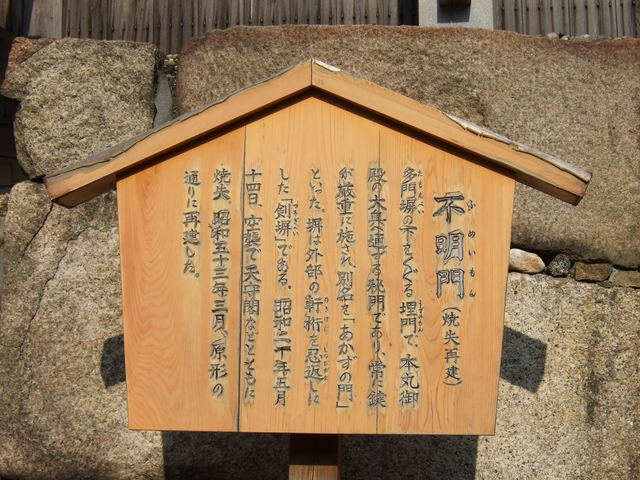 不明門(焼失再建)
ふめいもん
多門塀の下をくぐる埋門で、本丸御
殿の大奥へ通ずる秘門であり、常に鍵
が厳重に施され、別名を「あかずの門」
といった。塀は外部の軒桁を忍返しに
した「剣塀」である。昭和二十年五月
十四日、空襲で天守閣などとともに
焼失、昭和五十三年三月、原形の
通りに再建した。